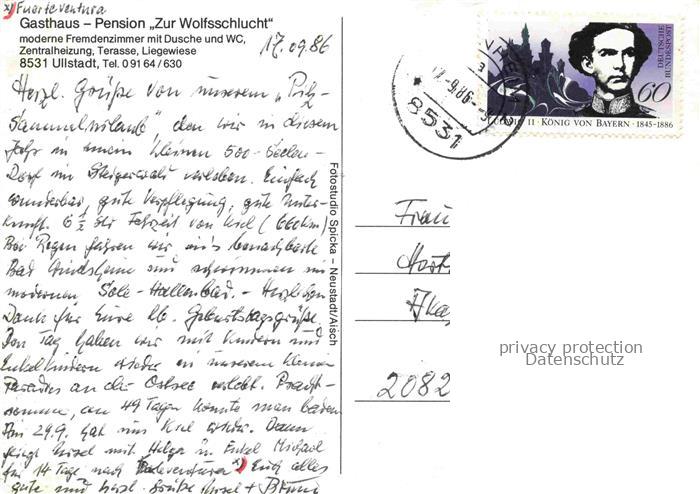 x) Fuerteventura
Gasthaus – Pension „Zur Wolfsschlucht“
moderne Fremdenzimmer mit Dusche und WC,
Zentralheizung, Terasse, Liegewiese
8531 Ullstadt, Tel. 0 91 64 / 630
17.09.86
Herzl. Grüße von unserem „Pilz-
Sammelurlaub“, den wir in diesem
Jahr in einem kleinen 500-Seelen-
Dorf im Steigerwald verleben. Einfach
wunderbar, gute Verpflegung, gute Unter-
kunft. 6 1/2 Std Fahrzeit von Kiel (660 km)
Bei Regen fahren wir ins benachbarte
Bad Windsheim und schwimmen im
modernen Sole-Hallenbad. - Herzlichen
Dank für Eure lb. Geburtstagsgrüße.
Den Tag haben wir mit Kindern und
Enkelkindern wieder in unserem kleinen
Paradies an der Ostsee verlebt. Pracht-
sommer, an 49 Tagen konnte man baden
Am 29.9. hat uns Kiel wieder. Dann
fliegt Ursel mit Helga u. Enkel Michael
für 14 Tage nach x) Euch alles
gute und herzl. Grüße Ursel + Bruno
Fotostudio Spicka – Neustadt/Aisch
8531
DEUTSCHE BUNDESPOST
60
LUDWIG II · KÖNIG VON BAYERN · 1845-1886
Frau
2082
privacy protection
Datenschutz